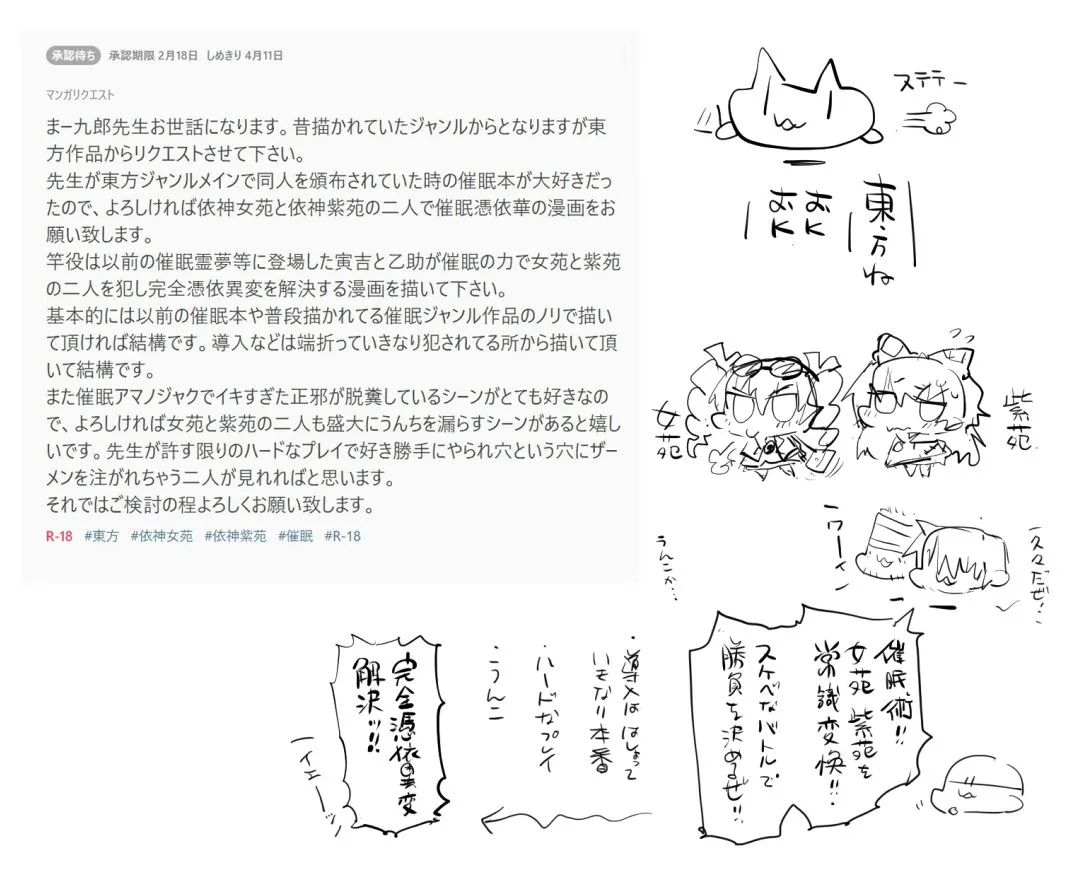 承認待ち 承認期限 2月18日 しめきり 4月11日
マンガリクエスト
まー九郎先生お世話になります。昔描かれていたジャンルからとなりますが東
方作品からリクエストさせて下さい。
先生が東方ジャンルメインで同人を頒布されていた時の催眠本が大好きだっ
たので、よろしければ依神女苑と依神紫苑の二人で催眠憑依華の漫画をお
願い致します。
竿役は以前の催眠霊夢等に登場した寅吉と乙助が催眠の力で女苑と紫苑
の二人を犯し完全憑依異変を解決する漫画を描いて下さい。
基本的には以前の催眠本や普段描かれてる催眠ジャンル作品のノリで描い
て頂ければ結構です。導入などは端折っていきなり犯されてる所から描いて頂
いて結構です。
また催眠アマノジャクでイキすぎた正邪が脱糞しているシーンがとても好きなの
で、よろしければ女苑と紫苑の二人も盛大にうんちを漏らすシーンがあると嬉し
いです。先生が許す限りのハードなプレイで好き勝手にやられ穴という穴にザー
メンを注がれちゃう二人が見れればと思います。
それではご検討の程よろしくお願い致します。
R-18 #東方 #依神女苑 #依神紫苑 #催眠 #R-18
ステテー
東方ね
おK
おK
紫苑
女苑
久々だぜ!
ワーイ
うんこか…
催眠術!!
女苑 紫苑を
常識変換!!
スケベなバトルで
勝負を決めるぜ!!
・導入ははしょって
いきなり本番
・ハードなプレイ
・うんこ
完全憑依異変
解決ッ!!
イエーッ